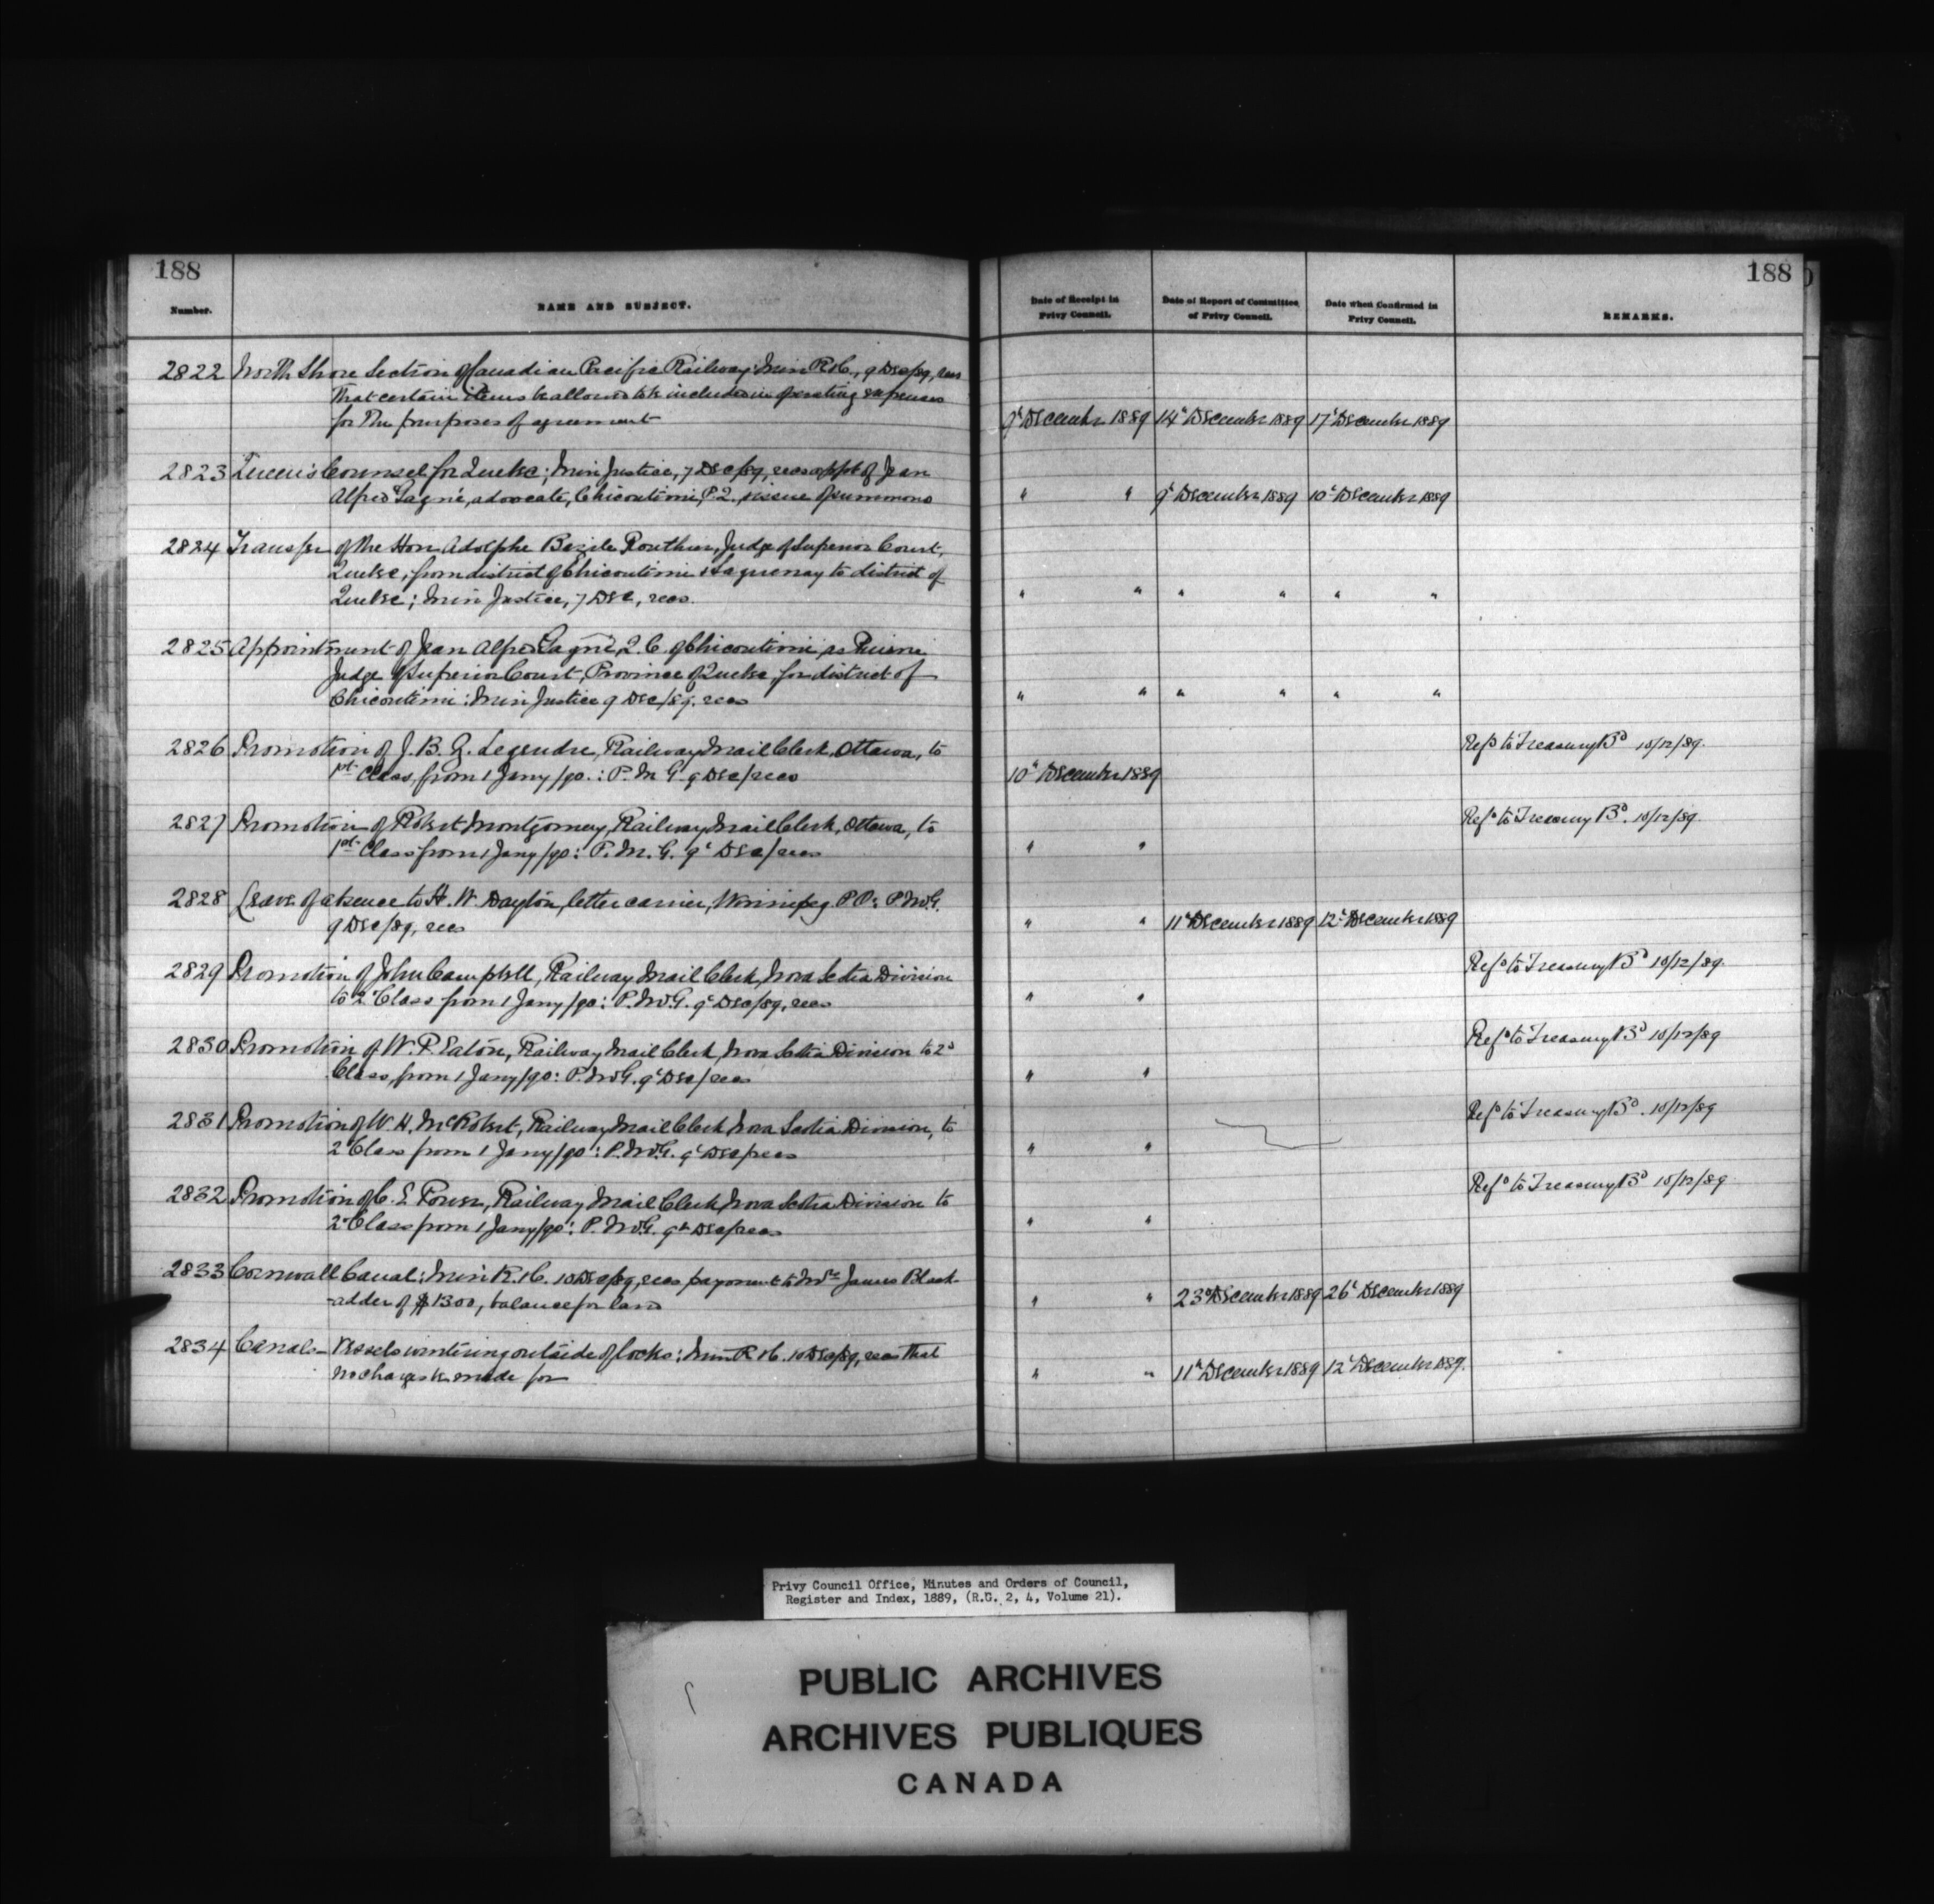 188
188
Number.
NAME AND SUBJECT.
Date of Receipt in
Privy Council.
Date of Report of Committee
of Privy Council.
Date when Confirmed in
Privy Council.
REMARKS.
2822 North Shore Section of Canadian Pacific Railway: Min R &C., 9 Dec/89, recs
That certain items be allowed to be included in operating expenses
for the purposes of agreement
9th December 1889 14th December 1889 17th December 1889
2823 Queen's Counsel for Quebec; Min Justice, 7 Dec/89, recs appt of Jean
Alfred Gagné, advocate, Chicoutimi, P.Q. issue of summons
" " 9th December 1889 10th December 1889
2824 Transfer of the Hon Adolphe Basile Routhier, Judge of Superior Court,
Quebec, from district of Chicoutimi & Saguenay to district of
Quebec; Min Justice, 7 Dec, recs.
" " " " " "
2825 Appointment of Jean Alfred Gagné, Q.C. of Chicoutimi as Puisne
Judge of Superior Court, Province of Quebec, for district of
Chicoutimi: Min Justice 9 Dec/89. recs
" " " " " "
2826 Promotion of J. B. G. Legendre, Railway Mail Clerk, Ottawa, to
1st Class from 1 Jany/90.: P. M G. 9 Dec/recs
10th December 1889
Refd to Treasury Bd 10/12/89.
2827 Promotion of Robert Montgomery, Railway Mail Clerk, Ottawa, to
1st Class from 1 Jany/90: P. M. G. 9th Dec/recs
" "
Refd to Treasury Bd. 10/12/89.
2828 Leave of absence to H. W. Dayton, letter carrier, Winnipeg P O: P. M.G.
9 Dec/89, recs
" " 11th December 1889 12th December 1889
2829 Promotion of John Campbell, Railway Mail Clerk, Nova Scotia Division
to 2d Class from 1 Jany/90: P. M.G. 9th Dec/89, recs
" "
Refd to Treasury Bd 10/12/89.
2830 Promotion of W. P. Eaton, Railway Mail Clerk, Nova Scotia Division to 2d
Class, from 1 Jany/90: P. M.G. 9th Dec/recs
" "
Refd to Treasury Bd 10/12/89
2831 Promotion of W. H. McRobert, Railway Mail Clerk Nova Scotia Division, to
2 Class from 1 Jany/90: P. M.G. 9th Dec/recs
" "
Refd to Treasury Bd. 10/12/89
2832 Promotion of C. E Power, Railway Mail Clerk, Nova Scotia Division to
2d Class from 1 Jany/90: P. M.G. 9th Dec/recs
" "
Refd to Treasury Bd 10/12/89
2833 Cornwall Canal: Min R. &C. 10 Dec/89, recs payment to Mrs James Black-
-adder of $1300, balance for land
" " 23d December 1889 26th December 1889
2834 Canals- Vessels wintering outside of locks: Min R &C. 10 Dec/89, recs that
no charges be made for
" " 11th December 1889 12th December 1889.
Privy Council Office, Minutes and Orders of Council,
Register and Index, 1889, (R.G. 2, 4, Volume 21).
PUBLIC ARCHIVES
ARCHIVES PUBLIQUES
CANADA